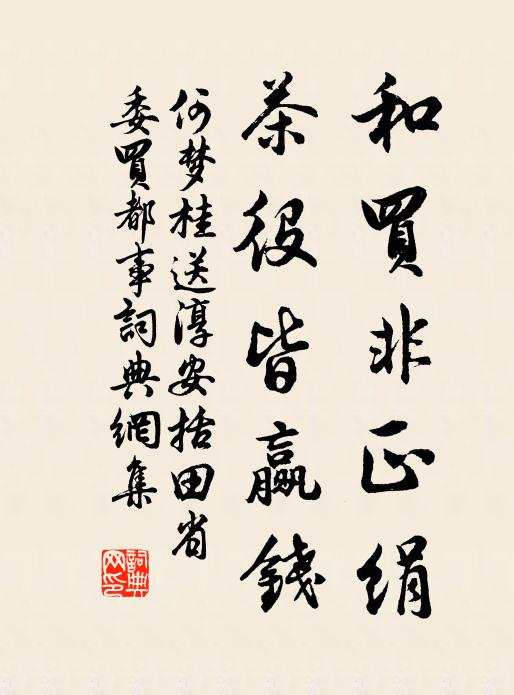 和買非正絹
茶役皆贏錢
何梦桂送淳安括田省
委買都事詞典網集
詞典網印